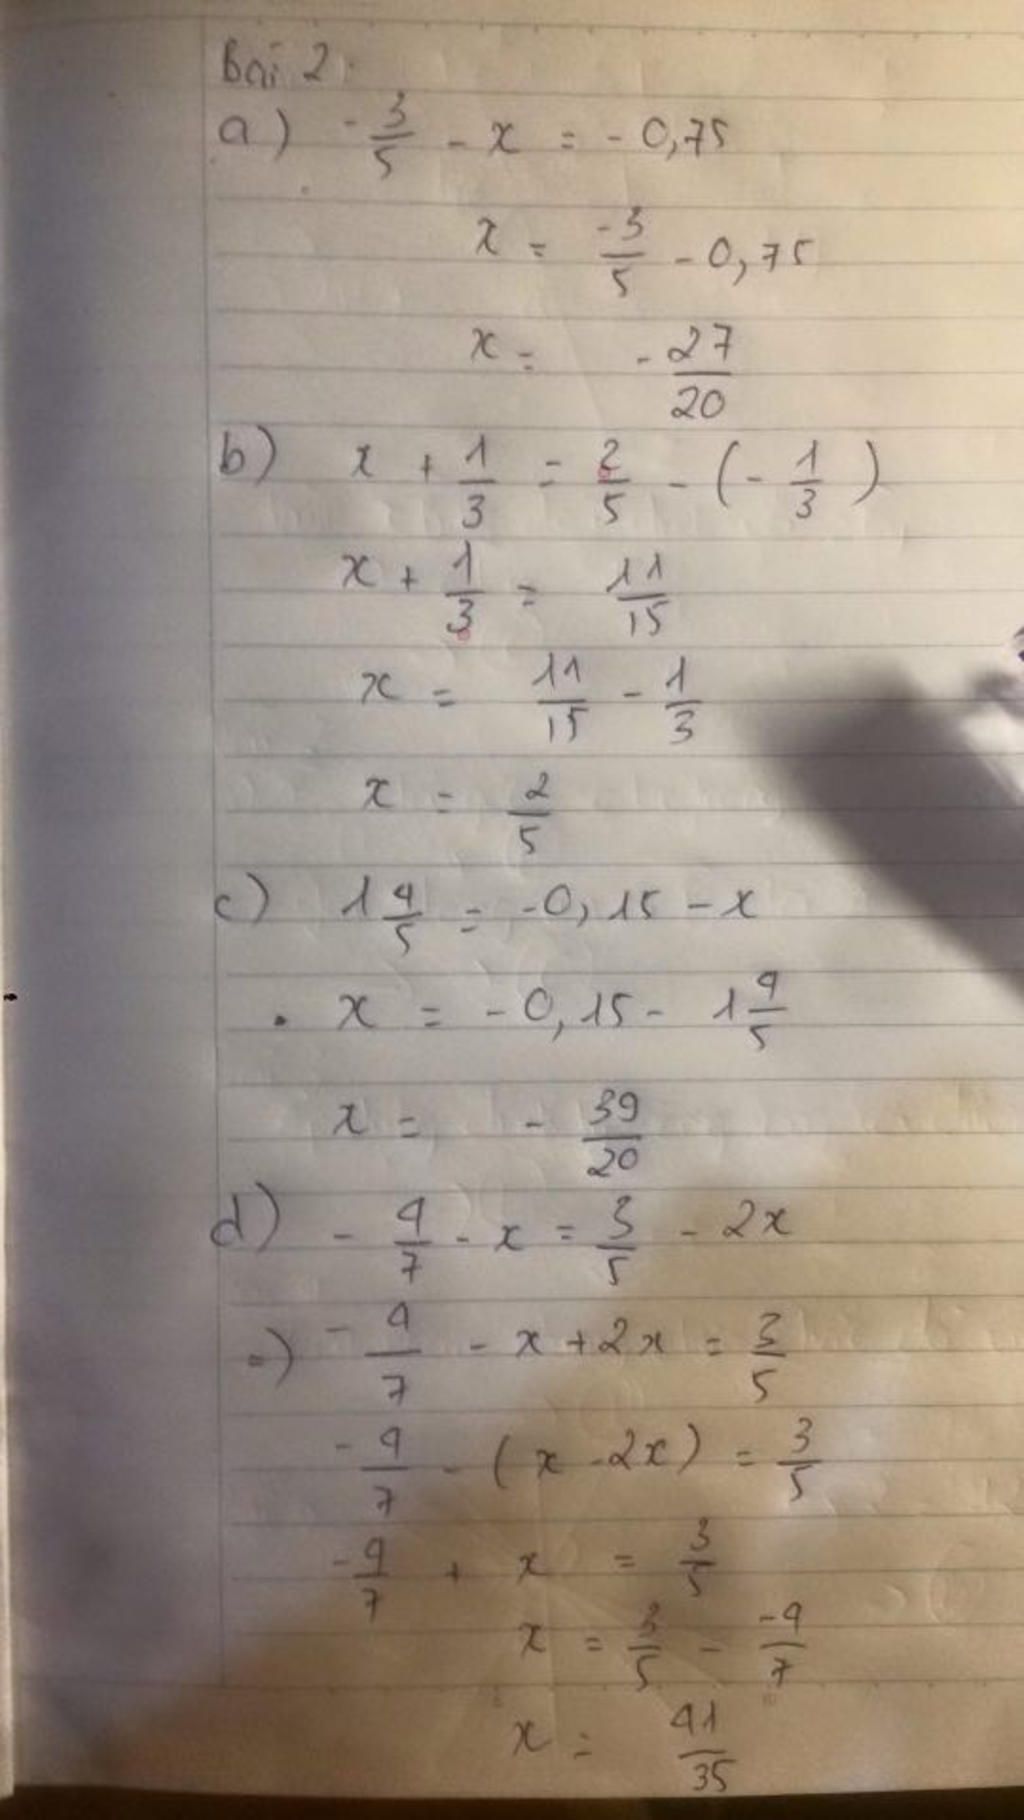 Bài 2:
a) -3/5 - x = - 0,75
x = -3/5 - 0,75
x = - 27/20
b) x + 1/3 = 2/5 - (- 1/3)
x + 1/3 = 11/15
x = 11/15 - 1/3
x = 2/5
c) 1 4/5 = -0,15 - x
. x = -0,15 - 1 4/5
x = - 39/20
d) - 4/7 - x = 3/5 - 2x
=) - 4/7 - x + 2x = 3/5
- 4/7 - (x - 2x) = 3/5
-4/7 + x = 3/5
x = 3/5 - -4/7
x = 41/35